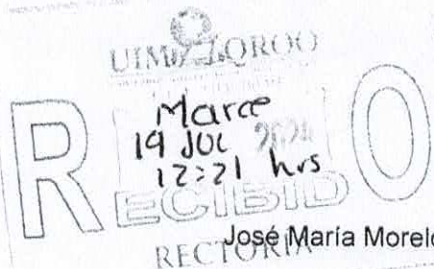 UIMQROO
Marce
19 JUL 2024
12:21 hrs
RECIBIDO
RECTORIA
José María Morelo